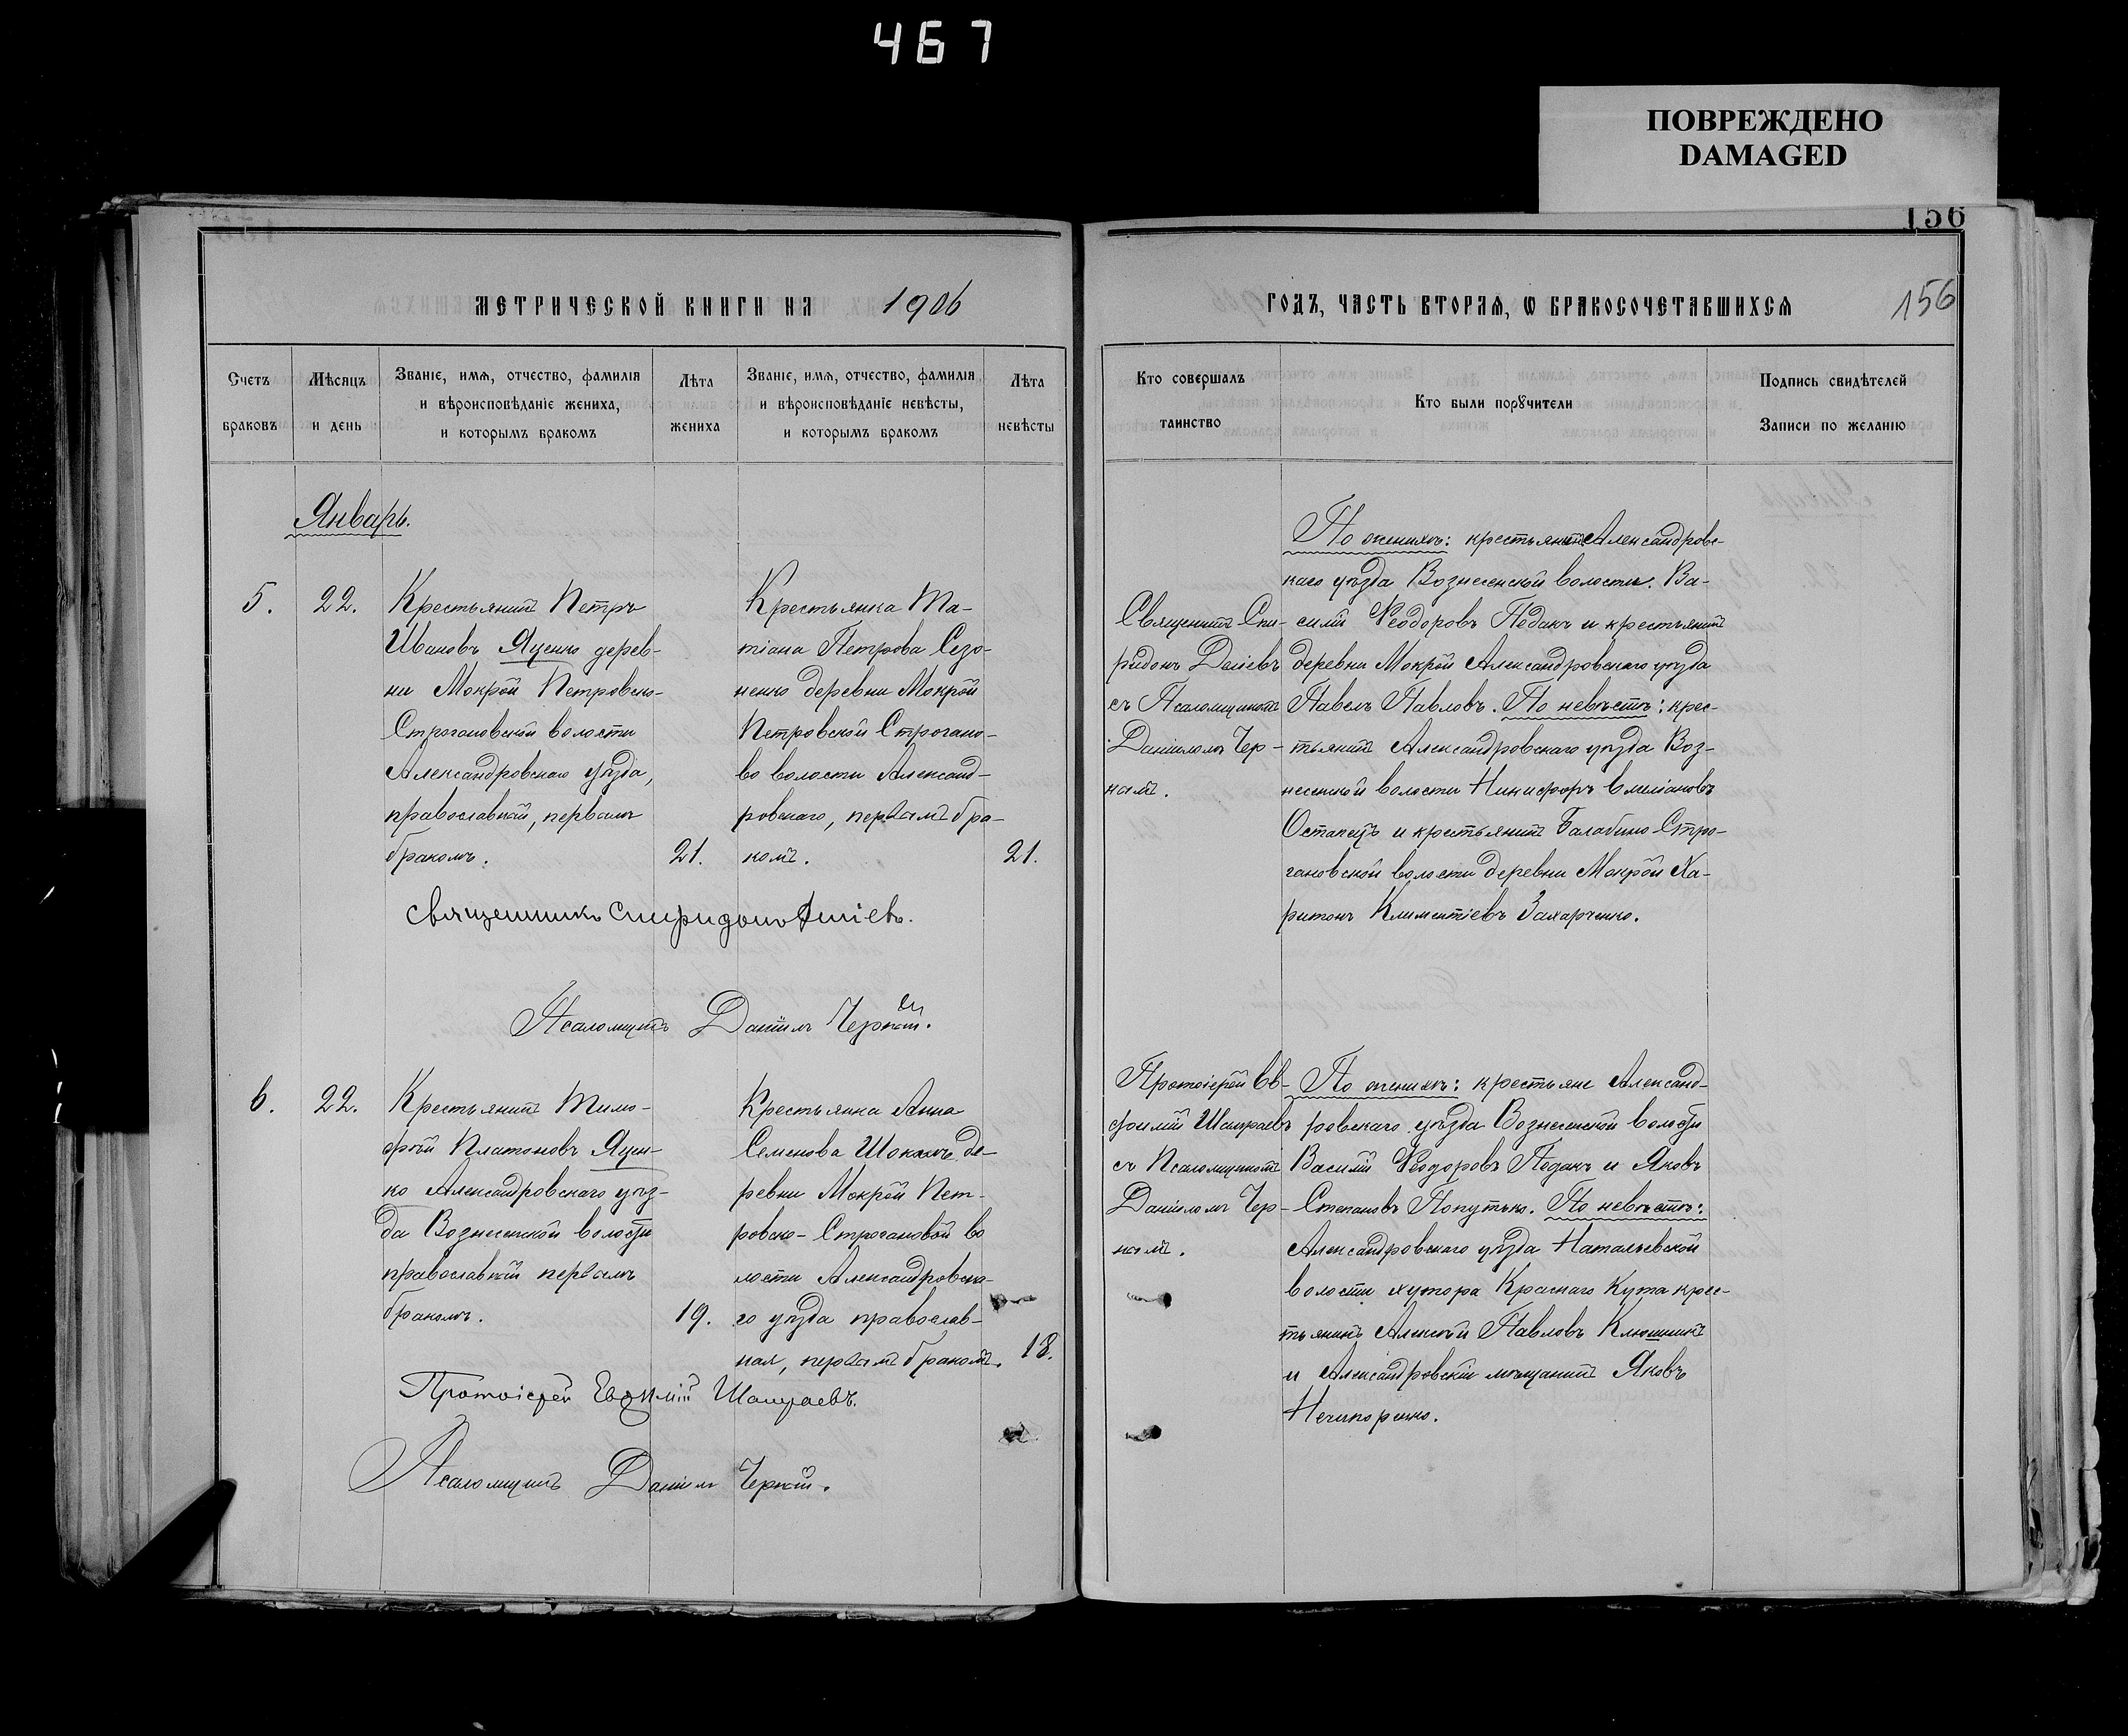 467
ПОВРЕЖДЕНО
DAMAGED
156
МЕТРИЧЕСКОЙ КНИГИ НА 1906
Счетъ браковъ
Мѣсяцъ и день
Званіе, имя, отчество, фамилія
и вѣроисповѣданіе жениха,
и которымъ бракомъ
Лѣта жениха
Званіе, имя, отчество, фамилія
и вѣроисповѣданіе невѣсты,
и которымъ бракомъ
Лѣта невѣсты
Январь.
5.
22.
Крестьянинъ Петръ
Ивановъ Яценко дерев-
ни Мокрой Петровско-
Строгановской волости
Александровскаго уѣзда,
православный, первымъ
бракомъ.
21.
Крестьянка Та-
тіана Петрова Сезо-
ненко деревни Мокрой
Петровской Строгано-
во волости Александ-
ровскаго, первымъ бра-
комъ.
21.
Священникъ Спиридонъ
Псаломщикъ Даніилъ Черный.
6.
22.
Крестьянинъ Тимо-
фей Платоновъ Яцен-
ко Александровскаго уѣз-
да Вознесенской волости
православный первымъ
бракомъ.
19.
Крестьянка Анна
Семенова де-
ревни Мокрой Пет-
ровско-Строгановой во
лости Александровска-
го уѣзда православ-
ная, первымъ бракомъ.
18.
Протоіерей Евфимій Шашраевъ.
Псаломщикъ Даніилъ Черный.
ГОДЪ, ЧАСТЬ ВТОРАЯ, Ѡ БРАКОСОЧЕТАВШИХСЯ
156
Кто совершалъ
таинство
Кто были порꙋчители
Подпись свидѣтелей
Записи по желанію
Священникъ Спи-
ридонъ
съ Псаломщикомъ
Даніиломъ Чер-
нымъ.
По женихѣ: крестьянинъ Александровс-
каго уѣзда Вознесенской волости. Ва-
силій Ѳеодоровъ Педакъ и крестьянинъ
деревни Мокрой Александровскаго уѣзда
Павелъ Павловъ. По невѣстѣ: крес-
тьянинъ Александровскаго уѣзда Воз-
несенской волости Никифоръ Емеліановъ
Остапецъ и крестьянинъ Балабино-Стро-
гановской волости деревни Мокрой Ха-
ритонъ Климентіевъ Захарченко.
Протоіерей Ев-
фимій Шашраевъ
съ Псаломщикомъ
Даніиломъ Чер-
нымъ.
По женихѣ: крестьяне Александ-
ровскаго уѣзда Вознесенской волости
Василій Ѳеодоровъ Педакъ и Яковъ
Степановъ Попутько. По невѣстѣ:
Александровскаго уѣзда Натальевской
волости хутора Краснаго Кута крес-
тьянинъ Алексѣй Павловъ Клюшникъ
и Александровскій мѣщанинъ Яковъ
Нечипоренко.